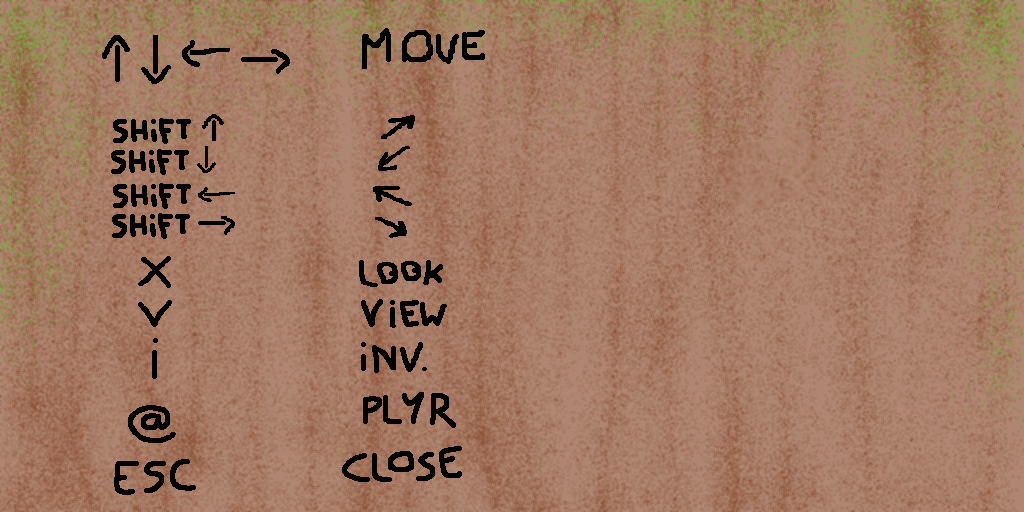 ↑ ↓ ← → MOVE
SHiFT ↑ ↗
SHiFT ↓ ↙
SHiFT ← ↖
SHiFT → ↘
X LOOK
V ViEW
i iNV.
@ PLYR
ESC CLOSE